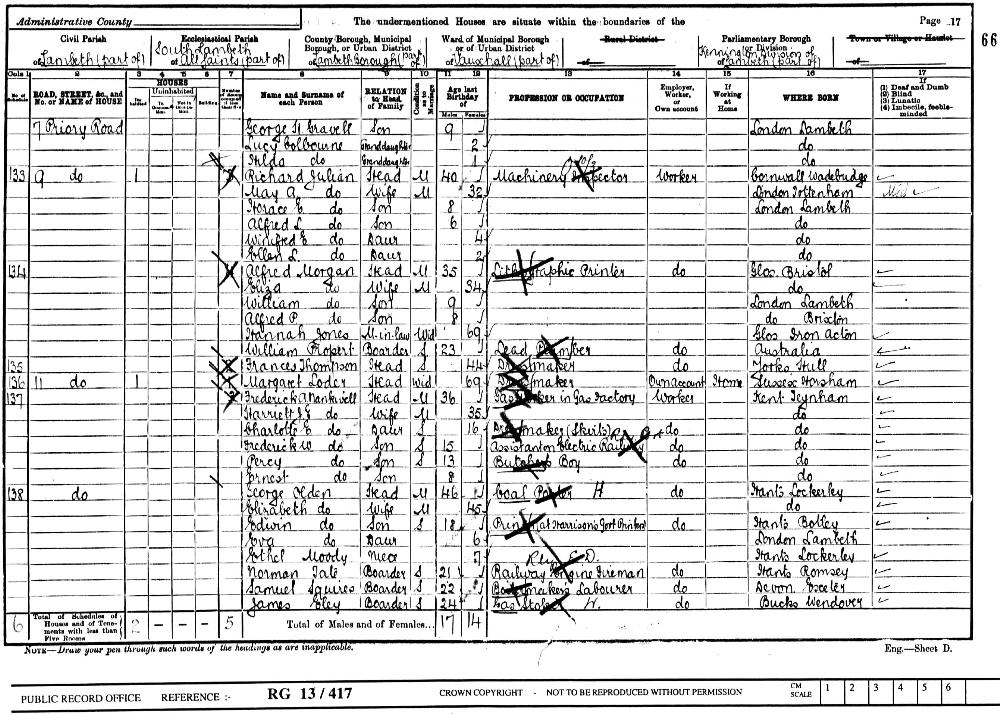 Administrative County
The undermentioned Houses are situate within the boundaries of the
Page 17
66
Civil Parish
of Lambeth (part of)
Ecclesiastical Parish
South Lambeth
of All Saints (part of)
County Borough, Municipal Borough, or Urban District
of Lambeth Borough (Part of)
Ward of Municipal Borough or of Urban District
of Vauxhall (part of)
Rural District
of
Parliamentary Borough or Division of
Kennington Division of
Lambeth (part of)
Town or Village or Hamlet
of
Cols 1 2 3 4 5 6 7 8 9 10 11 12 13 14 15 16 17
No. of Schedule
ROAD, STREET, &c., and No. or NAME of HOUSE
HOUSES
Inhabited
Uninhabited
Building
Name and Surname of each Person
RELATION to Head of Family
Condition as to Marriage
Age last Birthday of
Males Females
PROFESSION OR OCCUPATION
Employer, Worker, or Own account
If Working at Home
WHERE BORN
If
(1) Deaf and Dumb
(2) Blind
(3) Lunatic
(4) Imbecile, feeble-minded
7 Priory Road George H Gravell Son 9 London Lambeth
Lucy Colbourne Granddaughter 2 do
Hilda do Granddaughter 1 do
133 9 do 1 Richard Julian Head M 40 Machinery Inspector Worker Cornwall Wadebridge
May A. do Wife M 32 London Tottenham
Horace E do Son 8 London Lambeth
Alfred L. do Son 6 do
Winifred E do Daur 4 do
Ellen L. do Daur 2 do
134 4 Alfred Morgan Head M 35 Lithographic Printer do Glos. Bristol
Eliza do Wife M 34 do
William do Son 9 London Lambeth
Alfred P. do Son 8 do Brixton
Hannah Jones M-in-law Wid 69 Glos Iron Acton
William Propert Boarder S 23 Lead Plumber do Australia
135 Frances Thompson Head S 44 Dressmaker do Yorks Hull
136 11 do 1 Margaret Loder Head Wid 69 Dressmaker Own account Home Sussex Horsham
137 Frederick A Mankwell Head M 36 Gas Worker in Gas Factory Worker Kent Teynham
Harriett J E do Wife M 35 do
Charlotte E do Daur S 16 Dressmaker (Skirts) do do
Frederick W do Son S 15 Assistant on Electric Railway do do
Percy do Son S 13 Butchers Boy do do
Ernest do Son 8 do
138 do George Olden Head M 46 Coal Porter H do Hants Lockerley
Elizabeth do Wife M 45 do
Edwin do Son S 18 Printer at Harrisons Govt Printers do Hants Botley
Eva do Daur 6 London Lambeth
Ethel Moody Niece 7 Hants Lockerley
Norman Tate Boarder S 21 Railway Engine Fireman do Hants Romsey
Samuel Squires Boarder S 22 Labourer do Devon Exeter
James Eley Boarder S 24 Gas Stoker H. do Bucks Wendover
6 Total of Schedules of Houses and of Tenements with less than Five Rooms 2 – – – 5 Total of Males and of Females... 17 14
NOTE—Draw your pen through such words of the headings as are inapplicable.
Eng.—Sheet D.
PUBLIC RECORD OFFICE REFERENCE :- RG 13 / 417 CROWN COPYRIGHT - NOT TO BE REPRODUCED WITHOUT PERMISSION CM SCALE 1 2 3 4 5 6